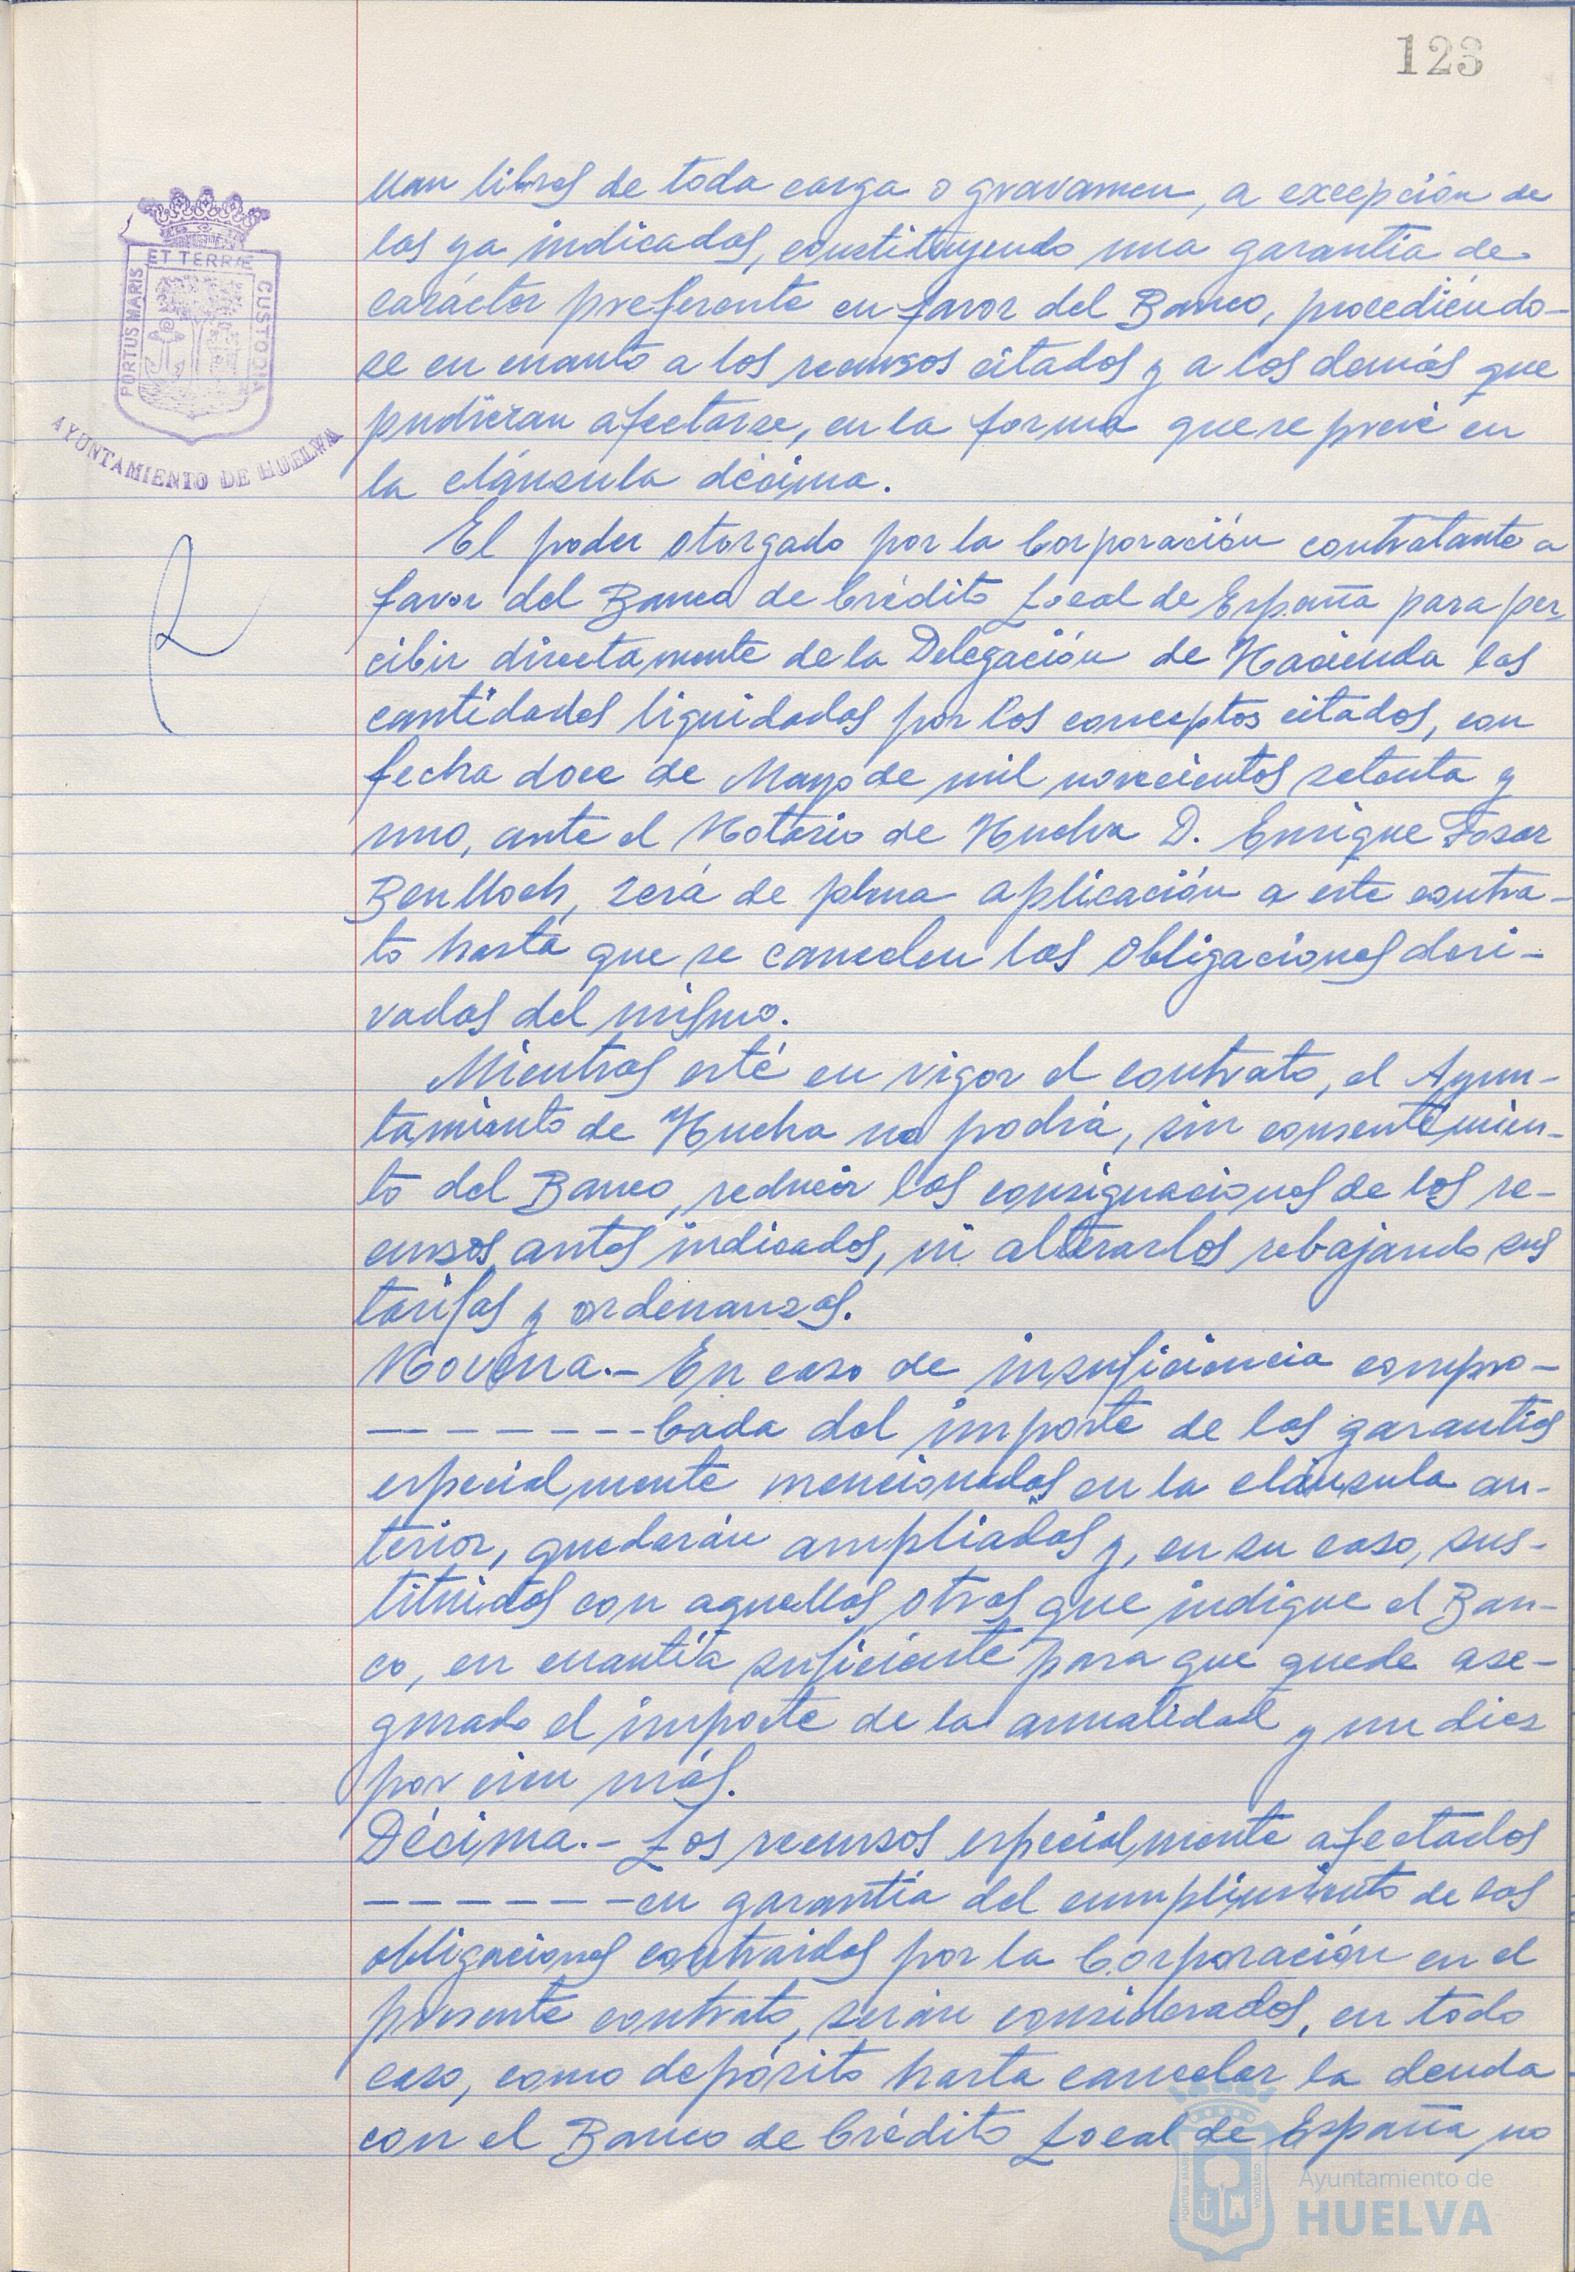 123
PORTUS MARIS ET TERRÆ CUSTODIA
AYUNTAMIENTO DE HUELVA
llan libres de toda carga o gravamen, a excepción de
los ya indicados, constituyendo una garantía de
carácter preferente en favor del Banco, procediéndo-
se en cuanto a los recursos citados y a los demás que
pudieran afectarse, en la forma que se prevé en
la cláusula décima.
El poder otorgado por la Corporación contratante a
favor del Banco de Crédito Local de España para per-
cibir directamente de la Delegación de Hacienda las
cantidades liquidadas por los conceptos citados, con
fecha doce de Mayo de mil novecientos setenta y
uno, ante el Notario de Huelva D. Enrique Fosar
Benlloch, será de plena aplicación a este contra-
to hasta que se cancelen las obligaciones deri-
vadas del mismo.
Mientras esté en vigor el contrato, el Ayun-
tamiento de Huelva no podrá, sin consentimien-
to del Banco, reducir las consignaciones de los re-
cursos antes indicados, ni alterarlos rebajando sus
tarifas y ordenanzas.
Novena.- En caso de insuficiencia compro-
- - - - - - - bada del importe de las garantías
especialmente mencionadas en la cláusula an-
terior, quedarán ampliadas y, en su caso, sus-
tituidas con aquellas otras que indique el Ban-
co, en cuantía suficiente para que quede ase-
gurado el importe de la anualidad y un diez
por cien más.
Décima.- Los recursos especialmente afectados
- - - - - - - en garantía del cumplimiento de las
obligaciones contraidas por la Corporación en el
presente contrato, serán considerados, en todo
caso, como depósito hasta cancelar la deuda
con el Banco de Crédito Local de España, no
Ayuntamiento de
HUELVA